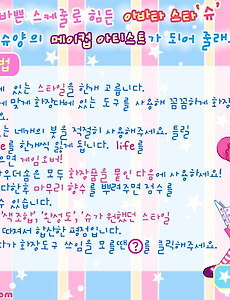 바쁜 스케줄로 힘든 아바타 스타 '슈'
슈양의 메이컵 아티스트가 되어 줄래
법
에 있는 스타일을 한개 고릅니다.
에 맞게 화장대에 있는 도구를 사용해 꼼꼼하게 화장
있는 네개의 붓을 적절히 사용해주세요. 틀릴
를 한개씩 잃게 됩니다. life를
으면 게임오버!
파우더솜은 모두 화장품을 묻인 다음에 사용하세요!
다하혹 마무리 향수를 뿌려주면 점수를
수 있습니다.
'색조합', '완성도', '슈가 원했던 스타일
따져서 합산한 평점입니다.
다가 화장도구 쓰임을 모를땐 ? 를 클릭해주세요.
.com